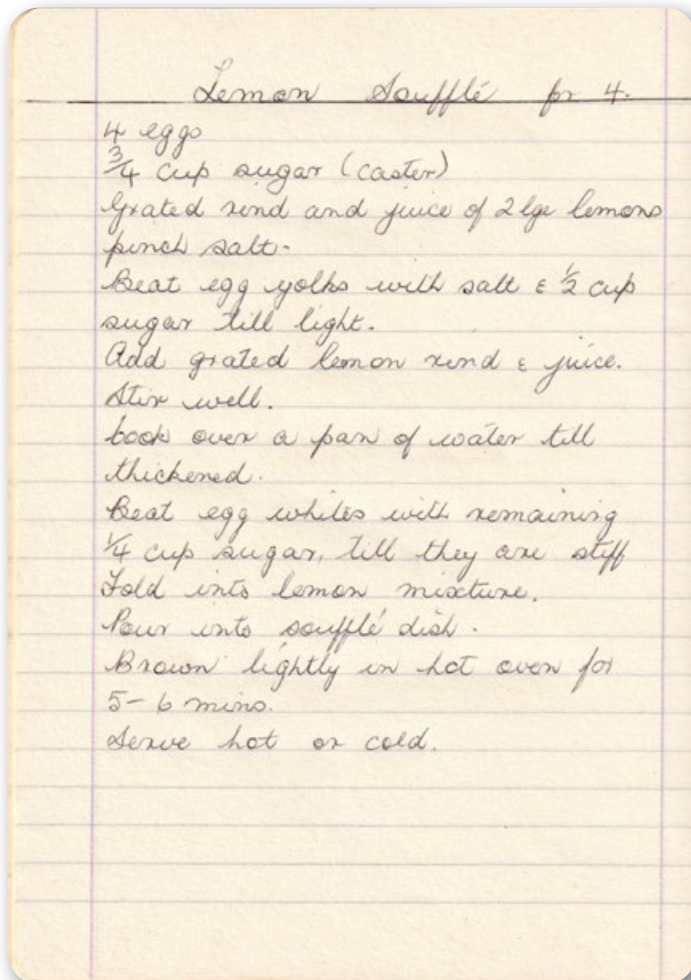 Lemon Soufflé for 4.
4 eggs
3/4 cup sugar (caster)
Grated rind and juice of 2 lge lemons
pinch salt.
Beat egg yolks with salt & 1/2 cup
sugar till light.
Add grated lemon rind & juice.
Stir well.
Cook over a pan of water till
thickened.
Beat egg whites with remaining
1/4 cup sugar, till they are stiff
Fold into lemon mixture.
Pour into soufflé dish.
Brown lightly in hot oven for
5-6 mins.
Serve hot or cold.